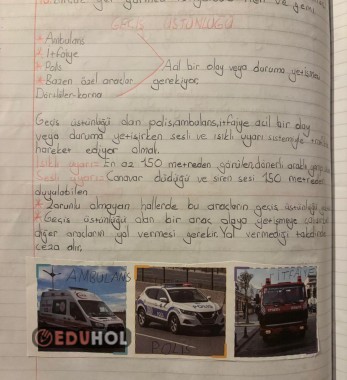 GEÇİŞ ÜSTÜNLÜĞÜ
* Ambulans
* İtfaiye
* Polis
* Bazen özel araçlar
Dörtlüler-korna
Acil bir olay veya duruma yetişmesi
gerekiyor.
Geçiş üstünlüğü olan polis, ambulans, itfaiye acil bir olay
veya duruma yetişirken sesli ve ışıklı uyarı sistemiyle
hareket ediyor olmalı.
Işıklı uyarı: En az 150 metreden görülen, dönerli
Sesli uyarı: Canavar düdüğü ve siren sesi 150 metreden
duyulabilen
* Zorunlu olmayan hallerde bu araçların geçiş üstünlüğü
* Geçiş üstünlüğü olan bir araç olaya yetişmeye
diğer araçların yol vermesi gerekir. Yol vermediği takdirde
ceza alır.
AMBULANS
POLİS
İTFAİYE
EDUHOL